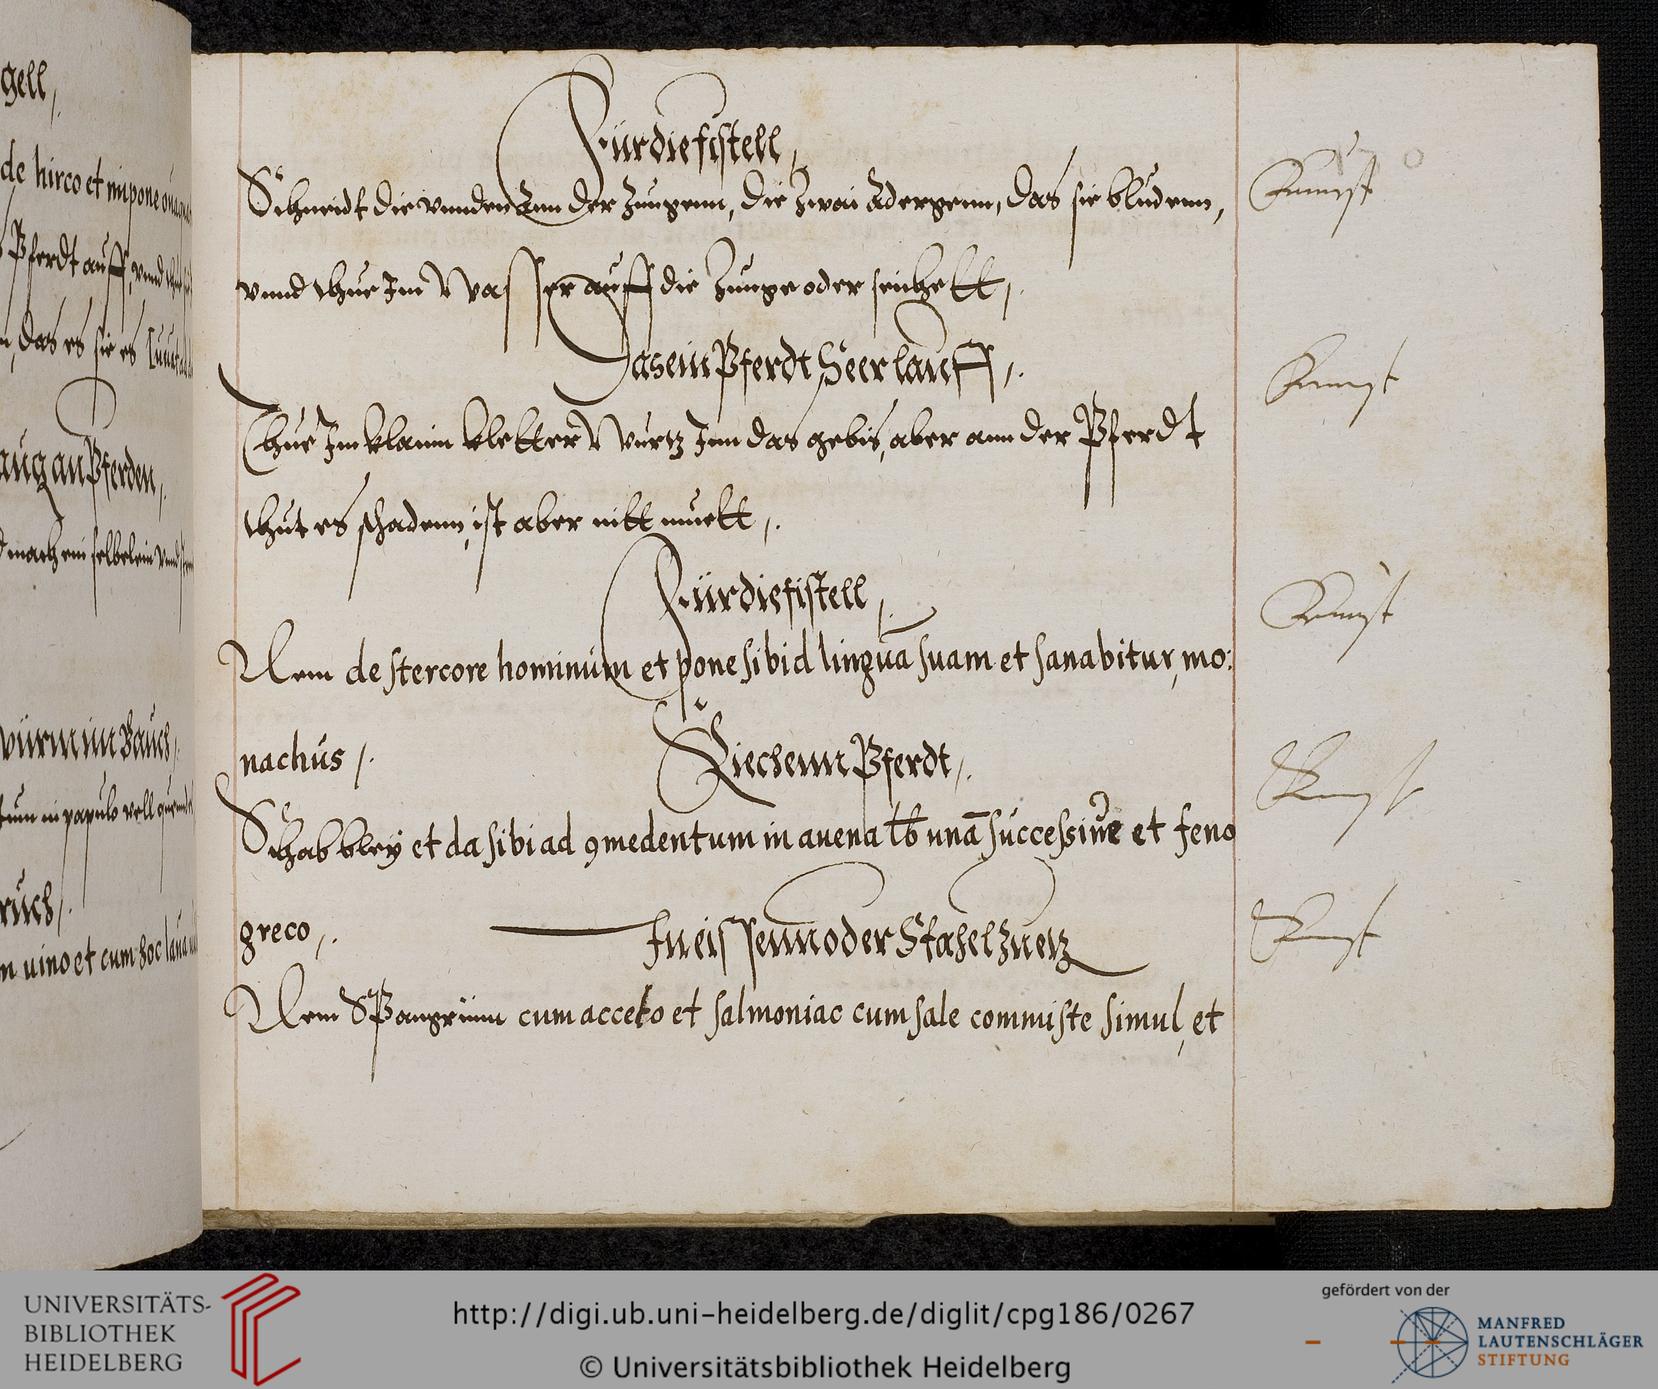 gell,
de hirco et inpone
Pferdt auff, vnnd
das es sie es
aug an Pferden,
mach ein selbelein vnnd
würm im Bauch,
tum in papulo vell
ruch,
m uino et cum hoc laua
Für die fistell,
Schneidt die vunden Ann der Zungenn, die Zwai Adergenn, das sie bludenn,
vnnd thue Im Wasser auff die Zunge oder seichett,
Das ein Pferdt Seer lauff,
Thue Im klaim kletter Wurtz Inn das gebis, aber ann der Pferdt
thut es schadenn, ist aber nitt
Für die fistell,
Rem de stercore hominum et pone sibi d linguā suam et sanabitur, mo:
nachus,
Siechenn Pferdt,
Schab bley et da sibi ad 9medentum in auena unā successiue et feno
greco,
oder
Rem SPangrünn cum acceto et salmoniac cum sale commiste simul, et
Kunst
Kunst
Kunst
Kunst
Kunst
UNIVERSITÄTS-
BIBLIOTHEK
HEIDELBERG
http://digi.ub.uni-heidelberg.de/diglit/cpg186/0267
© Universitätsbibliothek Heidelberg
gefördert von der
MANFRED
LAUTENSCHLÄGER
STIFTUNG